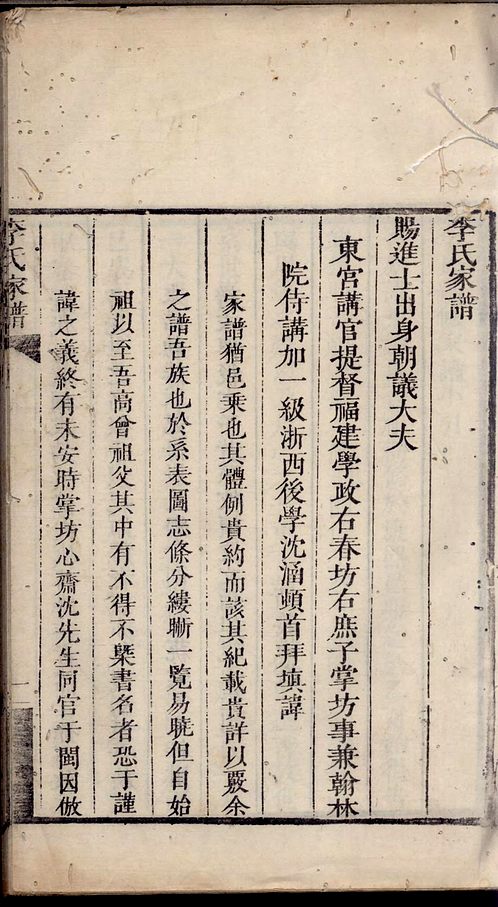 李氏家譜
賜進士出身朝議大夫
東宮講官提督福建學政右春坊右庶子掌坊事兼翰林
院侍講加一級浙西後學沈涵頓首拜塡諱
家譜猶邑乘也其體例貴約而該其紀載貴詳以覈余
之譜吾族也於系表圖志條分縷晰一覽易曉但自始
祖以至吾高曾祖父其中有不得不槩書名者恐于謹
諱之義終有未安時掌坊心齋沈先生同官于閩因倣
李氏家譜
一